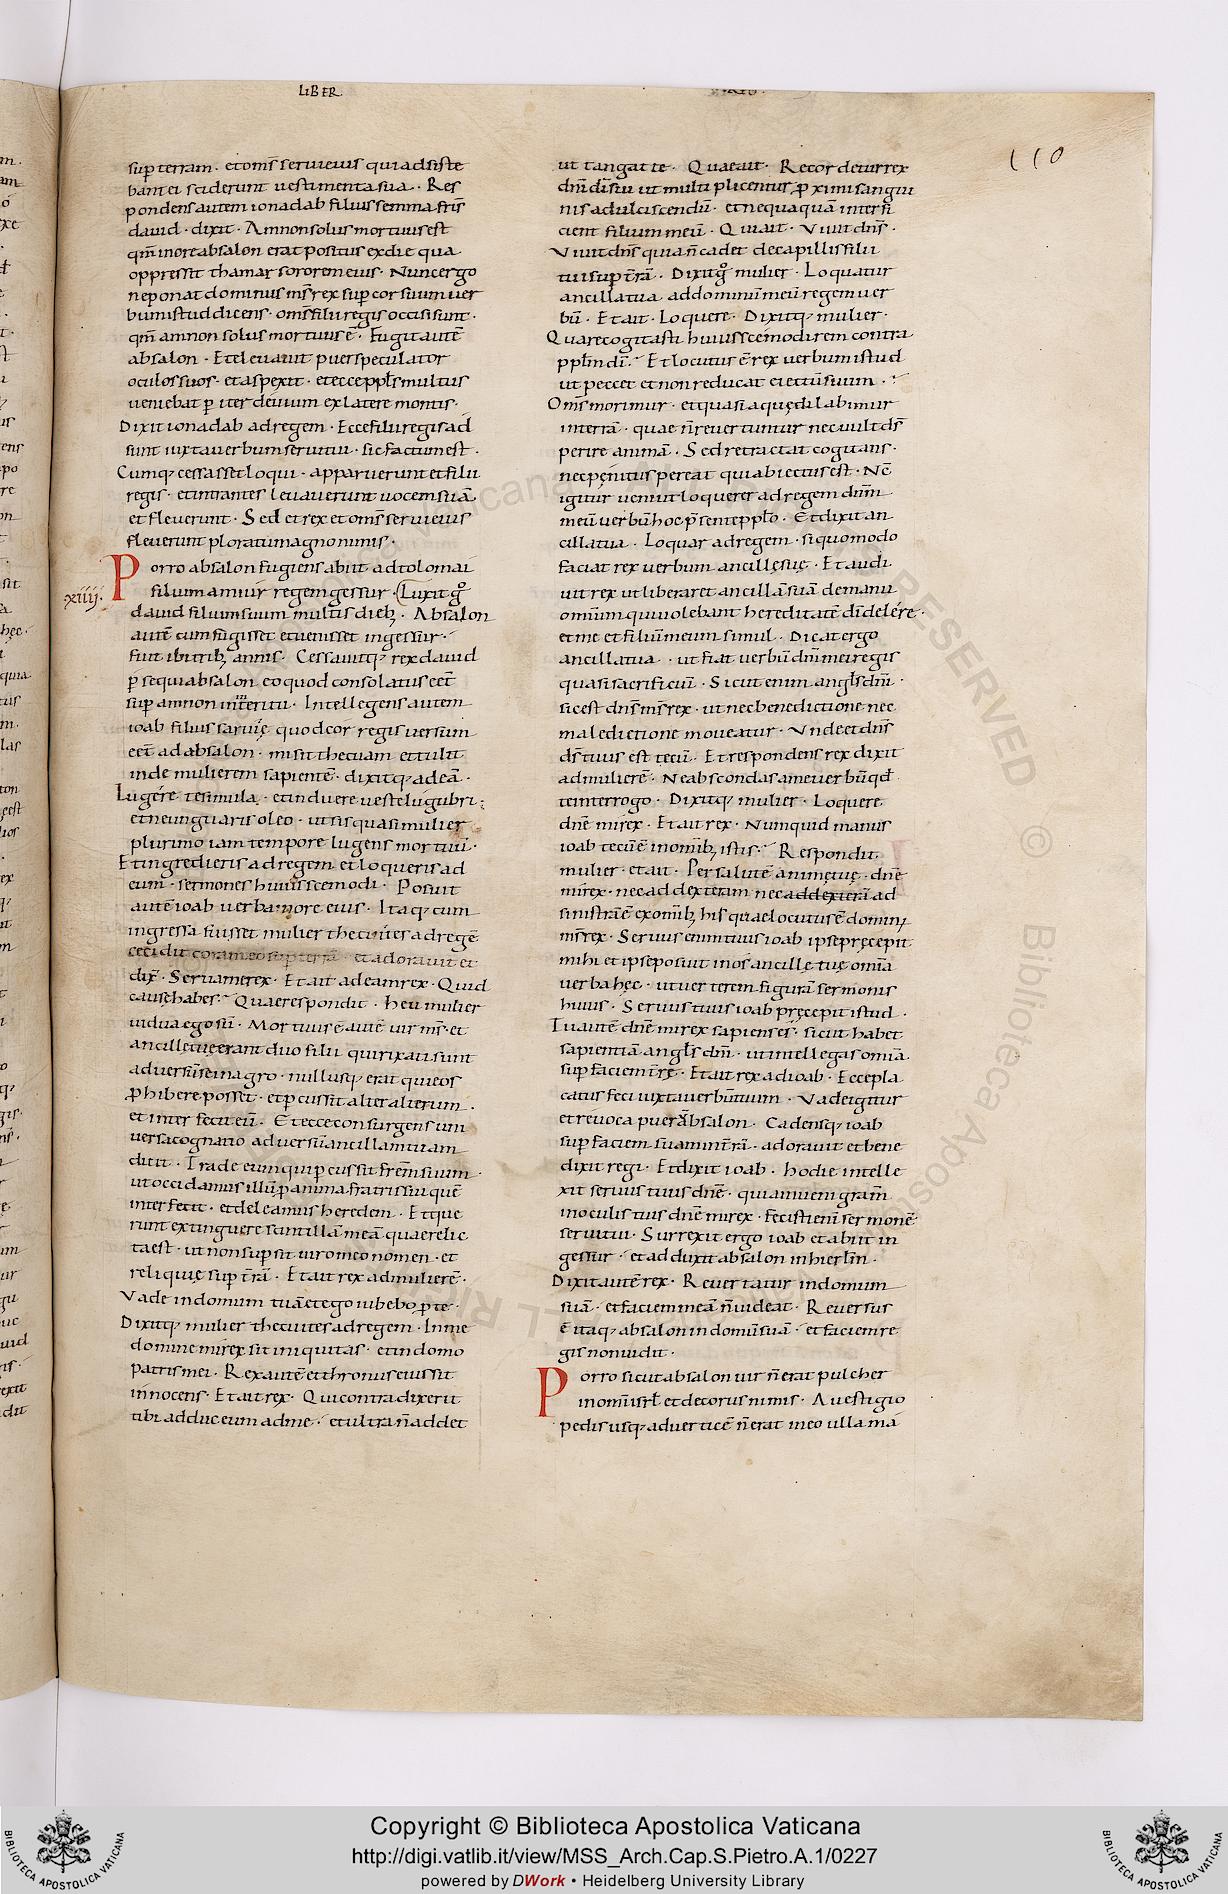 LIBER
110
sup terram · et oms̄ serui eius qui adsiste
bant ei sciderunt uestimenta sua · Res
pondens autem ionadab filius semma fr̄is
dauid · dixit · Amnon solus mortuus est
qm̄ in ore absalon erat positus ex die qua
oppressit thamar sororem eius · Nunc ergo
ne ponat dominus ms̄ rex sup cor suum uer
bum istud dicens · oms̄ filii regis occisi sunt ·
qm̄ amnon solus mortuus ē · Fugit autē
absalon · Et eleuauit puer speculator
oculos suos · et aspexit · et ecce ppl̄s multus
ueniebat p iter deuium ex latere montis ·
Dixit ionadab ad regem · Ecce filii regis ad
sunt iuxta uerbum serui tui · sic factum est ·
Cumq; cessasset loqui · apparuerunt et filii
regis · et intrantes leuauerunt uocem suā
et fleuerunt · Sed et rex et oms̄ serui eius
fleuerunt ploratu magno nimis ·
Porro absalon fugiens abiit ad tolomai
xiiij. filium amiur regem gessur · Luxit gͦ
dauid filium suum multis dieb; · Absalon
autē cum fugisset et uenisset in gessur ·
fuit ibi trib; annis · Cessauitq; rex dauid
p sequi absalon eo quod consolatus eēt
sup amnon interitu · Intellegens autem
ioab filius saruię quod cor regis uersum
eēt ad absalon · misit thecuam et tulit
inde mulierem sapientē · dixitq; ad eā ·
Lugére te simula · et induere ueste lugubri ·
et ne unguaris oleo · ut sis quasi mulier
plurimo iam tempore lugens mortuū ·
Et ingredieris ad regem et loqueris ad
eum · sermones huiuscemodi · Posuit
autē ioab uerba in ore eius · Itaq; cum
ingressa fuisset mulier thecuites ad regē
cecidit coram eo sup terrā · et adorauit et
dix̄ · Serua me rex · Et ait ad eam rex · Quid
causę habes · Quae respondit · heu mulier
uidua ego sū · Mortuus ē autē uir ms̄ · et
ancillę tuę erant duo filii qui rixati sunt
aduersū se in agro · nullusq; erat qui eos
phibere posset · et p cussit alter alterum ·
et interfecit eū · Et ecce consurgens uni
uersa cognatio aduersū ancillam tuam
dicit · Trade eum qui p cussit frēm suum ·
ut occidamus illū p anima fratris sui quē
interfecit · et deleamus heredem · Et que
runt extinguere scintillā meā quae relic
ta est · ut non sup sit uiro meo nomen · et
reliquię sup t̄rā · Et ait rex ad mulierē ·
Vade in domum tuā et ego iubebo p te ·
Dixitq; mulier thecuites ad regem · In me
domine mi rex sit iniquitas · et in domo
patris mei · Rex autē et thronus eius sit
innocens · Et ait rex · Qui contradixerit
tibi adduc eum ad me · et ultra n̄ addet
ut tangat te · Quae ait · Recordetur rex
dnī dī sui ut multiplicentur p ximi sangui
nis ad ulciscendū · et nequaquā interfi
cient filium meū · Qui ait · Viuit dns̄ ·
Viuit dns̄ quia n̄ cadet de capillis filii
tui sup t̄rā · Dixit gͦ mulier · Loquatur
ancilla tua ad dominū meū regem uer
bū · Et ait · Loquere · Dixitq; mulier ·
Quare cogitasti huiuscemodi rem contra
ppl̄m dī · Et locutus ē rex uerbum istud
ut peccet et non reducat eiectū suum ·
Oms̄ morimur · et quasi aquę dilabimur
in terrā · quae n̄ reuertuntur nec uult ds̄
perire animā · Sed retractat cogitans ·
ne penitus pereat qui abiectus est · Nc̄
igitur ueni ut loquerer ad regem dnm̄
meū uerbū hoc p̄sente pplo · Et dixit an
cilla tua · Loquar ad regem · si quomodo
faciat rex uerbum ancillę suę · Et audi
uit rex ut liberaret ancillā suā de manu
omnium qui uolebant hereditatē dī delére ·
et me et filiū meum simul · Dicat ergo
ancilla tua · ut fiat uerbū dnī mei regis
quasi sacrificiū · Sicut enim angls̄ dnī ·
sic est dns̄ ms̄ rex · ut nec benedictione nec
maledictione moueatur · Vnde et dns̄
ds̄ tuus est tecū · Et respondens rex dixit
ad mulierē · Ne abscondas a me uerbū qd̄
te interrogo · Dixitq; mulier · Loquere
dnē mi rex · Et ait rex · Numquid manus
ioab tecū ē in omnib; istis · Respondit
mulier · et ait · Per salutē animę tuę · dnē
mi rex · nec ad dexteram nec ad dexterā ad
sinistrā ē ex omīb; his quae locutus ē dominus
ms̄ rex · Seruus enim tuus ioab ipse pręcepit
mihi et ipse posuit in os ancillę tuę omīa
uerba hęc · ut uerterem figurā sermonis
huius · Seruus tuus ioab pręcepit istud ·
Tu autē dnē mi rex sapiens es · sicut habet
sapientiā angls̄ dnī · ut intellegis omīa
sup faciem t̄rę · Et ait rex ad ioab · Ecce pla
catus feci iuxta uerbū tuum · Vade igitur
et reuoca puerū absalon · Cadensq; ioab
sup faciem suam in t̄rā · adorauit et bene
dixit regi · Et dixit ioab · hodie intelle
xit seruus tuus dnē · quia inueni grām
in oculis tuis dnē mi rex · fecisti enī sermonē
serui tui · Surrexit ergo ioab et abiit in
gessur · et adduxit absalon in hierlm̄ ·
Dixit autē rex · Reuertatur in domum
suā · et faciem meā n̄ uideat · Reuersus
ē itaq; absalon in domū suā · et faciem re
gis non uidit ·
Porro sicut absalon uir n̄ erat pulcher
in omī isrl̄ et decorus nimis · A uestigio
pedis usq; ad uerticē n̄ erat in eo ulla ma
Copyright © Biblioteca Apostolica Vaticana
http://digi.vatlib.it/view/MSS_Arch.Cap.S.Pietro.A.1/0227
powered by DWork • Heidelberg University Library